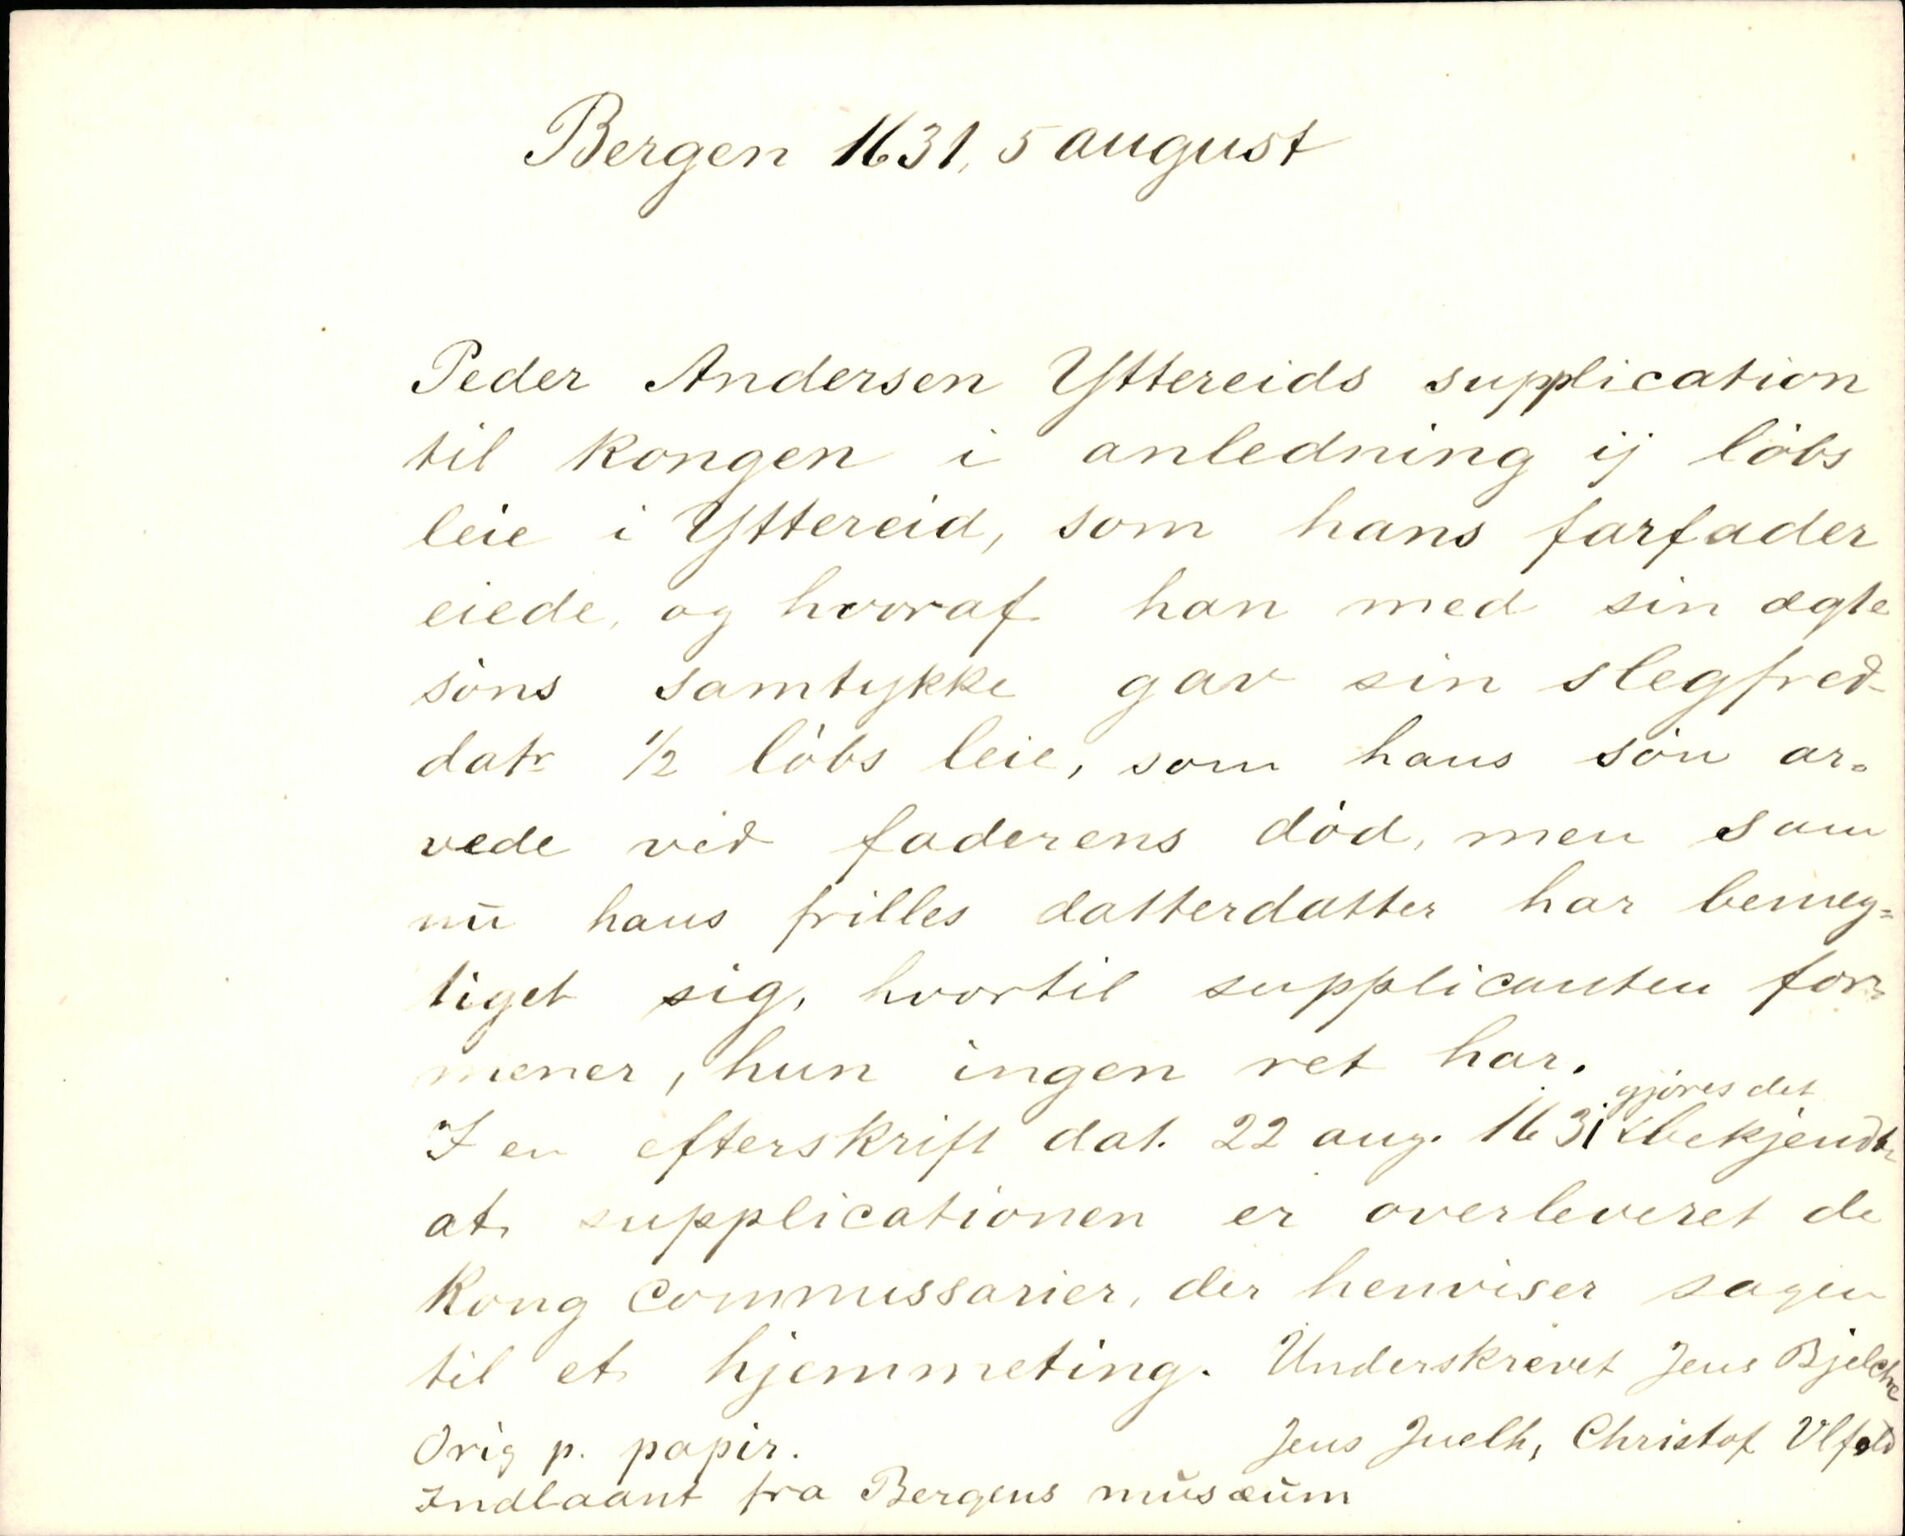 Bergen 1631, 5 august
Peder Andersen Yttereids supplication
til kongen i anledning ij löbs
leie i Yttereid, som hans farfader
eiede, og hvoraf han med sin ægte
söns samtykke gav sin slegfred-
datr 1/2 löbs leie, som hans sön ar=
vede ved faderens död, men som
nu hans frilles datterdatter har bemæg=
tiget sig, hvortil supplicanten for=
mener, hun ingen ret har.
gjöres det
I en efterskrift dat. 22 aug. 1631 bekjendt
at supplicationen er overleveret de
Kong commissarier, der henviser sagen
til et hjemmeting. Underskrevet Jens Bjelche
Orig p. papir. Jens Juelh, Christof Ulfeld
Indlaant fra Bergens musæum